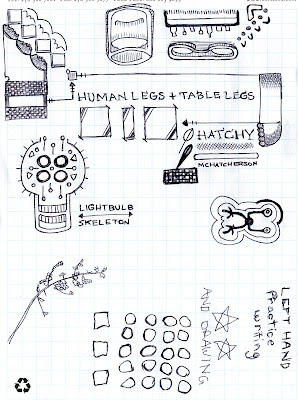 HUMAN LEGS + TABLE LEGS
HATCHY
MCHATCHERSON
LIGHTBULB
SKELETON
LEFT HAND
practice
writing
AND DRAWING